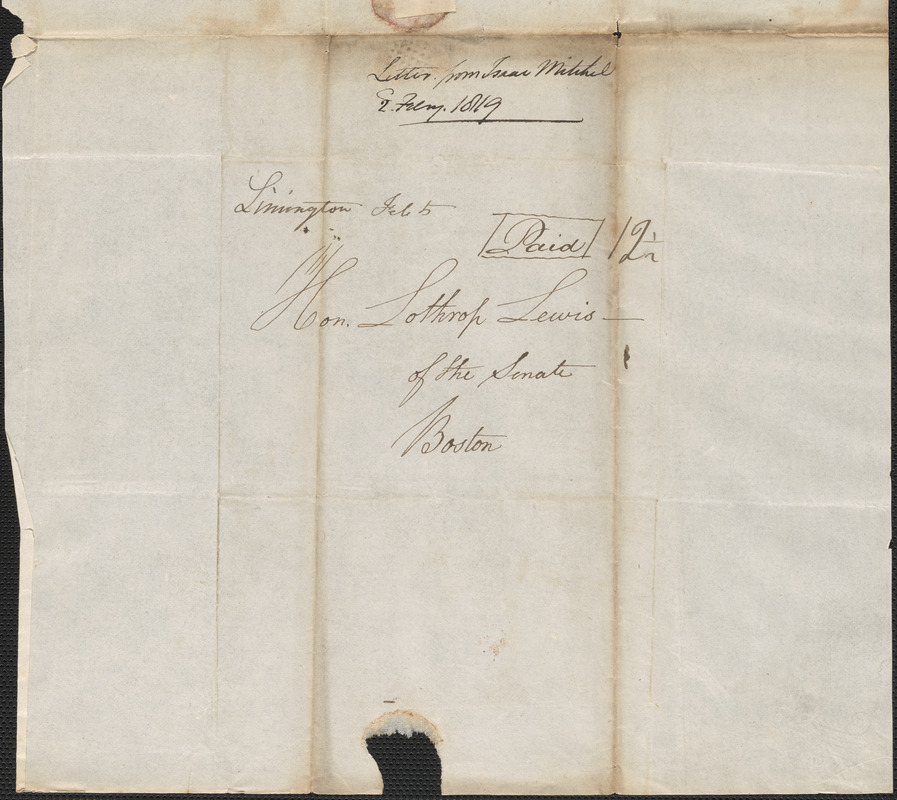 Letter from Isaac Mitchel
2. Feby. 1819
Limington Feb 5
Paid 12 1/2
Hon. Lothrop Lewis
of the Senate
Boston